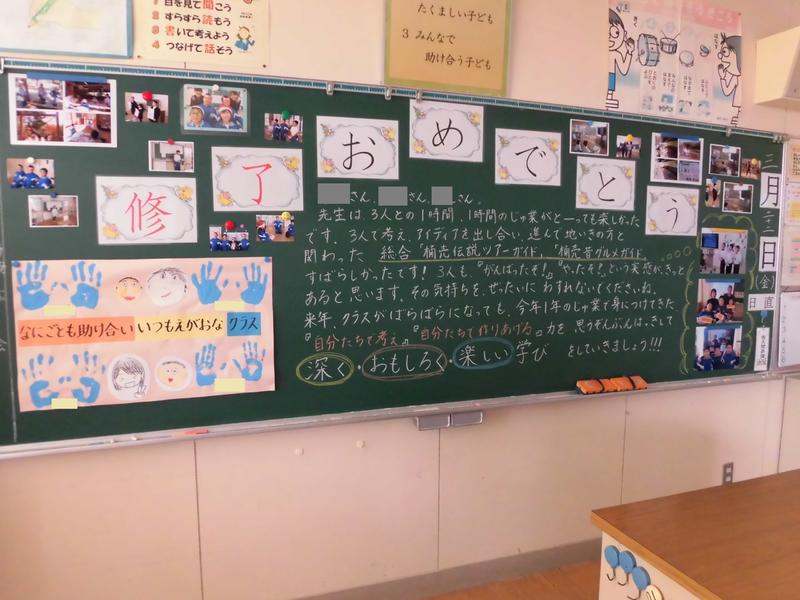 目を見て聞こう
2 すらすら読もう
3 書いて考えよう
4 つなげて話そう
たくましい子ども
3 みんなで
助け合う子ども
修了おめでとう
さん、さん、さん。
先生は、3人との1時間、1時間のじゅ業がとーっても楽しかった
です。3人で考え、アイディアを出し合い、進んで地いきの方と
関わった 総合「桶売伝説ツアーガイド」「桶売音グルメガイド
すばらしかったです！3人も、『がんばったぞ！』『やったぞ！』という実感が、きっと
あると思います。その気持ちを、ぜったいに わすれないでくださいね。
来年、クラスがばらばらになっても、今年1年のじゅ業で身につけてきた
『自分たちで考え』『自分たちで作りあげる』力を 思うぞんぶんはっきして
深く・おもしろく・楽しい学び をしていきましょう!!!
なにごとも助け合い いつもえがおな クラス
三月二二日(金)
日直